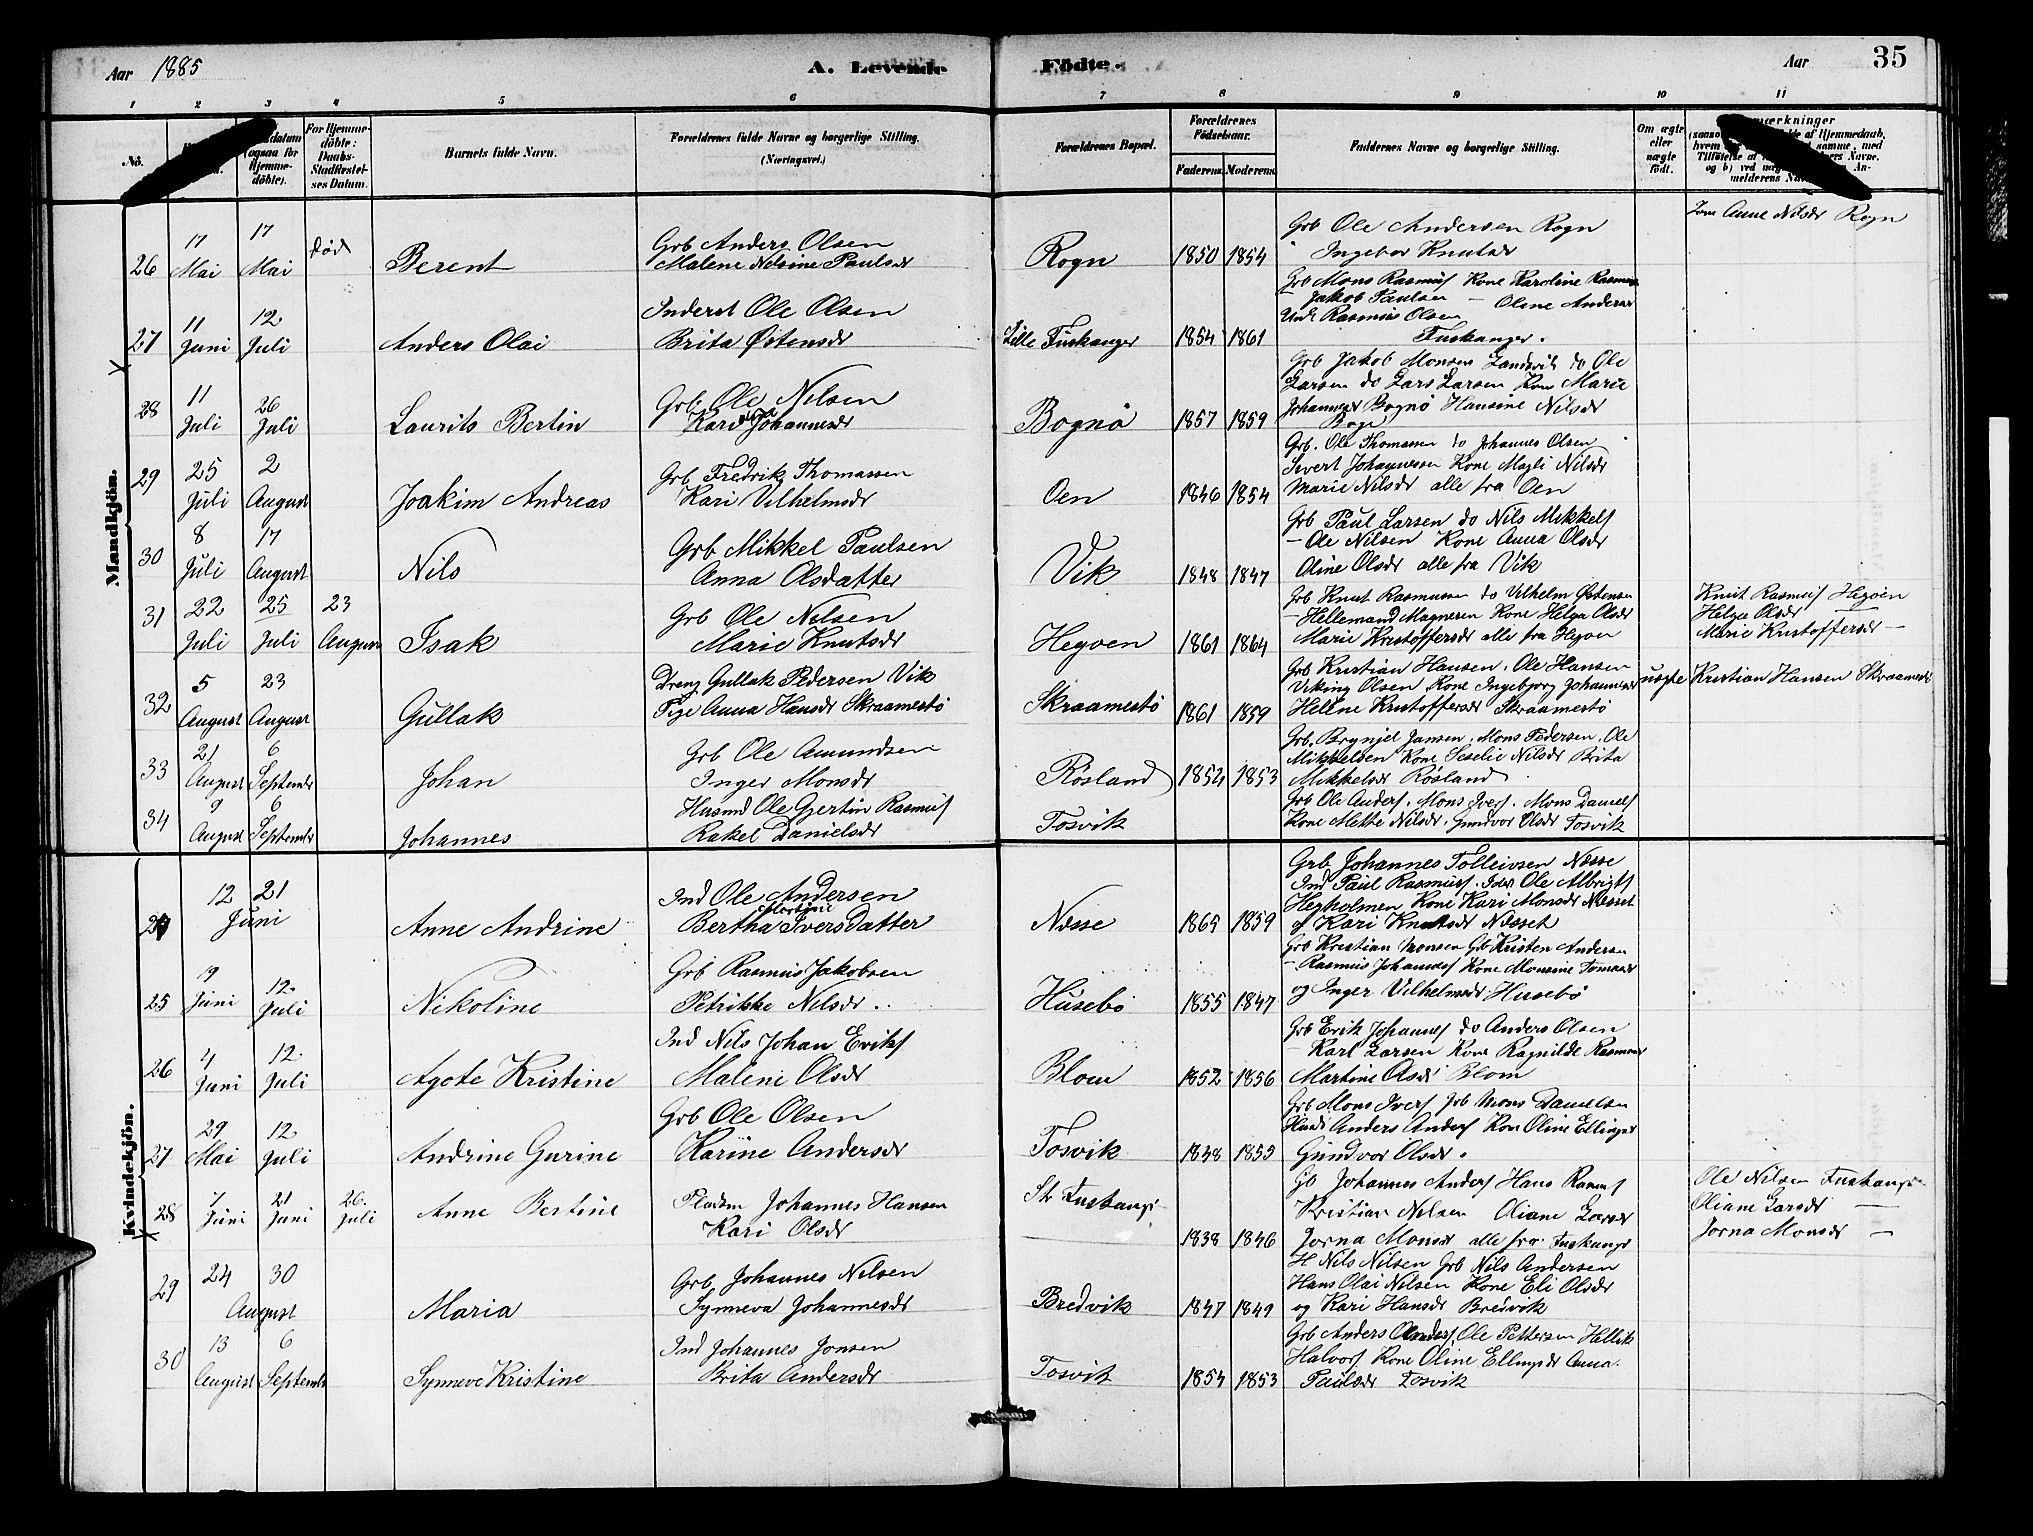 Aar 1885
A. Levende Födte.
Aar
35
1 2 3 4 5 6 7 8 9 10 11
No.
datum (ogsaa for Hjemme-döbte).
For Hjemme-döbte: Daabs-Stadfæstel-ses Datum.
Barnets fulde Navn.
Forældrenes fulde Navne og borgerlige Stilling. (Næringsvei.)
Forældrenes Bopæl.
Forældrenes Födselsaar.
Faderens. Moderens.
Faddernes Navne og borgerlige Stilling.
Om ægte eller uægte födt.
Mandkjön.
26 17 Mai 17 Mai død Berent
Grb Anders Olsen
Malene Nilsine Paulsdr
Rogn 1850 1854
Grb Ole Andersen Rogn
Ingebor Knutsdr
Anne Nilsdr Rogn
27 11 Juni 12 Juli Anders Olai
Inderst Ole Olsen
Brita Østensdr
Lille Fuskanger 1854 1861
Grb Mons Rasmusf Kone Karoline Rasmusdr
Jakob Paulsen – Oline Andersdr
Rasmus Olsen
Fuskanger.
28 11 Juli 26 Juli Laurits Bertin
Grb Ole Nilsen
Kari Johannesdr
Bognø 1857 1859
Grb Jakob Monsen Landsvik do Ole
Larsen do Lars Larsen Kone Marie
Johannesdr Bognø Hansine Nilsdr
29 25 Juli 2 August Joakim Andreas
Grb Fredrik Thomassen
Kari Vilhelmsdr
Oen 1846 1854
Grb. Ole Thomassen do Johannes Olsen
Sivert Johannessen Kone Magli Nilsdr
Marie Nilsdr alle fra Oen
30 8 Juli 17 August Nils
Grb Mikkel Paulsen
Anna Olsdatter
Vik 1848 1847
Grb Paul Larsen do Nils Mikkelsf
– Ole Nilsen Kone Anna Olsdr
Oline Olsdr alle fra Vik
31 22 Juli 25 Juli 23 August Isak
Grb Ole Nilsen
Marie Knutsdr
Hegöen 1861 1864
Grb Knut Rasmussen do Vilhelm Østensen
– Hellemand Magnesen Kone Helga Olsdr
Marie Kristoffersdr alle fra Hegöen
Knut Rasmusf Hegöen
Helga Olsdr —
Marie Kristoffersdr —
32 5 August 23 August Gullak
Dreng Gullak Pedersen Vik
Pige Anna Hansdr Skraamestø
Skraamestø 1861 1859
Grb Kristian Hansen. Ole Hansen
Viking Olsen Kone Ingebjorg Johannesdr
Helene Kristoffersdr Skraamestø
uægte
Kristian Hansen Skraamestø
33 21 August 6 September Johan
Grb Ole Amundsen
Inger Monsdr
Røsland 1852 1853
Grb. Brynjel Jansen. Mons Pedersen. Ole
Mikkelsen Kone Seselie Nilsdr Brita
Mikkelsdr Røsland
34 9 August 6 September Johannes
Husmd Ole Gjertin Rasmusf
Rakel Danielsdr
Tosvik
Grb Ole Andersf. Mons Iversf. Mons Danielsf
Kone Mette Nilsdr. Gundvor Olsdr Tosvik
Kvindekjön.
24 12 21 Juni Anne Andrine
Ind Ole Andersen
Bertha Martine Iversdatter
Nesse 1865 1859
Grb Johannes Tolleivsen Nesse
Ind Paul Rasmusf. Ole Albrigtf
Hegholmen Kone Kari Monsdr Nesset
og Kari Knutsdr Nesset
25 9 Juni 12 Juli Nikoline
Grb Rasmus Jakobsen
Petrikke Nilsdr
Husebø 1855 1847
Grb Kristian Monsen Grb Kristen Andersen
– Rasmus Johannesf Kone Monsine Tomasdr
og Inger Vilhelmsdr Husebø
26 4 Juni 12 Juli Agote Kristine
Ind Nils Johan Eriksf
Malene Olsdr
Blom 1852 1856
Grb Erik Johannesf do Anders Olsen
– Karl Larsen Kone Ragnilde Rasmusdr
Martine Olsdr Blom
27 29 Mai 12 Juli Andrine Gurine
Grb Ole Olsen
Karine Andersdr
Tosvik 1838 1855
Grb Mons Iversf Grb Mons Danielsen
Husmd Anders Andersf Kone Oline Ellingsdr
Gundvor Olsdr.
28 7 Juni 21 Juni 26. Juli Anne Bertine
Pladsm Johannes Hansen
Kari Olsdr
St Fuskanger 1838 1846
Gb Johannes Andersf Hans Rasmusf
Kristian Nilsen Oliane Larsdr
Jorna Monsdr alle fra Fuskanger
Ole Nilsen Fuskanger
Oliane Larsdr —
Jorna Monsdr —
29 24 30 August Maria
Grb Johannes Nilsen
Synneva Johannesdr
Bredvik 1847 1849
H Nils Nilsen Grb Nils Andersen
Hans Olai Nilsen Kone Eli Olsdr
og Kari Hansdr Bredvik
30 13 August 6 September Synneve Kristine
Ind Johannes Jonsen
Brita Andersdr
Tosvik 1854 1853
Grb Anders Andersf. Ole Pettersen Hellik
Halvorsf Kone Oline Ellingsdr Anna
Paulsdr Tosvik